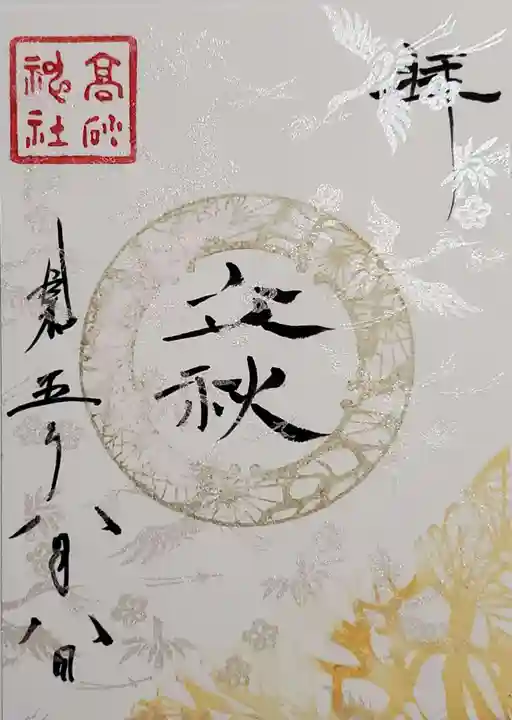 拝
立
秋
髙砂
神社
五年八月八日